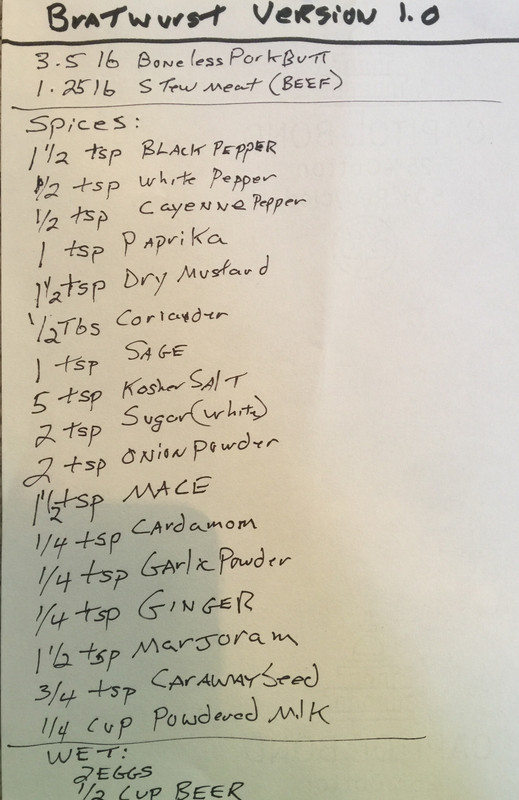 Bratwurst Version 1.0
3.5 lb Boneless Pork Butt
1.25 lb Stew meat (BEEF)
Spices:
1 1/2 tsp BLACK PEPPER
1/2 tsp white Pepper
1/2 tsp Cayenne Pepper
1 tsp Paprika
1 1/2 tsp Dry Mustard
1/2 Tbs Coriander
1 tsp SAGE
5 tsp Kosher SALT
2 tsp Sugar (white)
2 tsp ONION Powder
1 1/2 tsp MACE
1/4 tsp CArdamom
1/4 tsp GArlic Powder
1/4 tsp GINGER
1 1/2 tsp Marjoram
3/4 tsp CARAWAY Seed
1/4 cup Powdered Milk
WET:
2 EGGS
1/2 CUP BEER